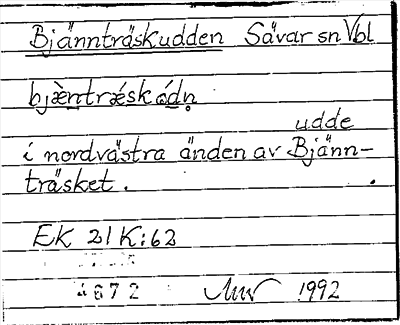 Bjännträskudden Sävar sn Vbl
bjæ̀ntrǽsk ódn̥
udde
i nordvästra änden av Bjänn-
träsket.
EK 21K:62
4672 1992